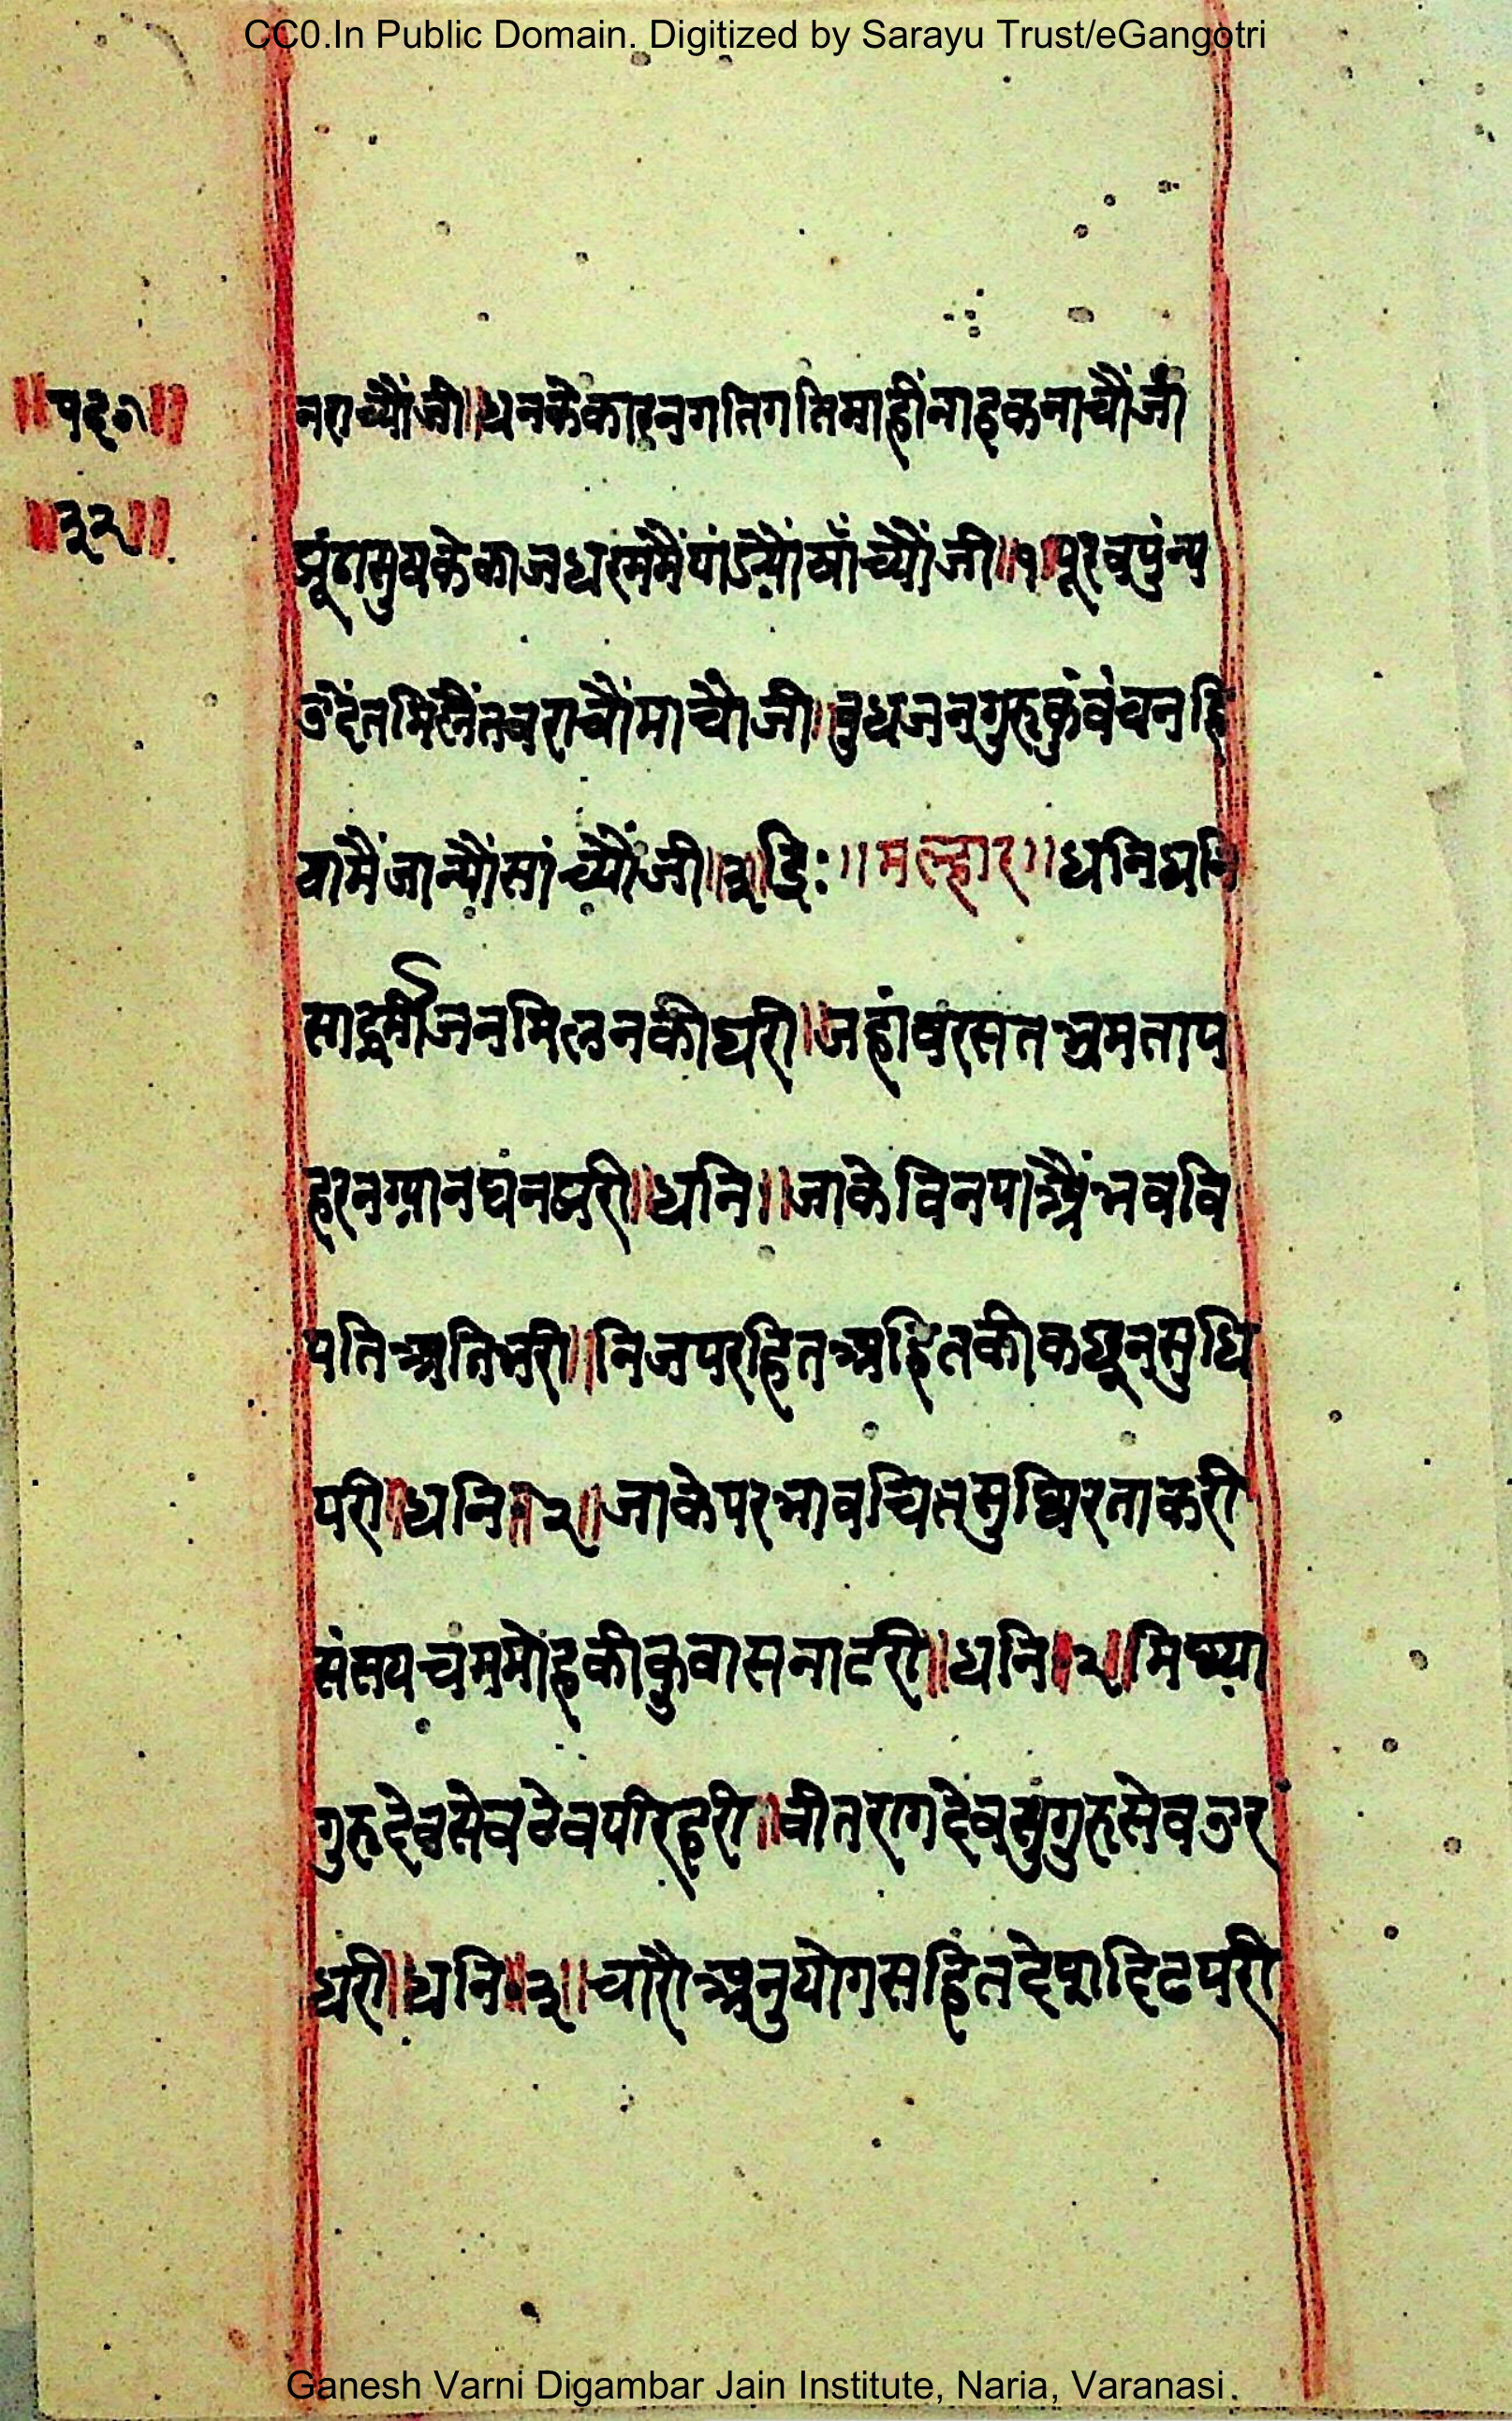 CC0.In Public Domain. Digitized by Sarayu Trust/eGangotri
॥पद॥
॥३२॥
नराच्यौंजी॥धनकेकारनगतिगतिमाहींनाइकनाचौंजी
झूंठासुषकेकाजधरममैंपांड्यौंषाँच्यौंजी॥१॥पूरवपुंन्य
उदैंतमिलैंतबराचौंमाचौजी॥बुधजनगुरुकुंवंचनहि
यामैंजान्यौंसांच्यौंजी॥२॥द्रिः॥मल्हार॥धनिधनि
साद्धर्मीजनमिलनकीघरी॥जहांवंरसतभ्रमताप
हरनग्यानघंनझरी॥धनि॥जाकेविनपाऐंभवबि
पतिअतिभरी॥निजपरहितअहितकीकछूनसुधि
परी॥धनि॥१॥जाकेपरभावचितसुथिरताकरी
संसयचंममोहकीकुवासनाटरी॥धनि॥२॥मिथ्या
गुरुदेवसेवटेवपरिहरी॥वीतरागदेवसुगुरुसेवउर
धरी॥धनि॥३॥चारौअनुयोगसहितदेषादिठपरी
Ganesh Varni Digambar Jain Institute, Naria, Varanasi.